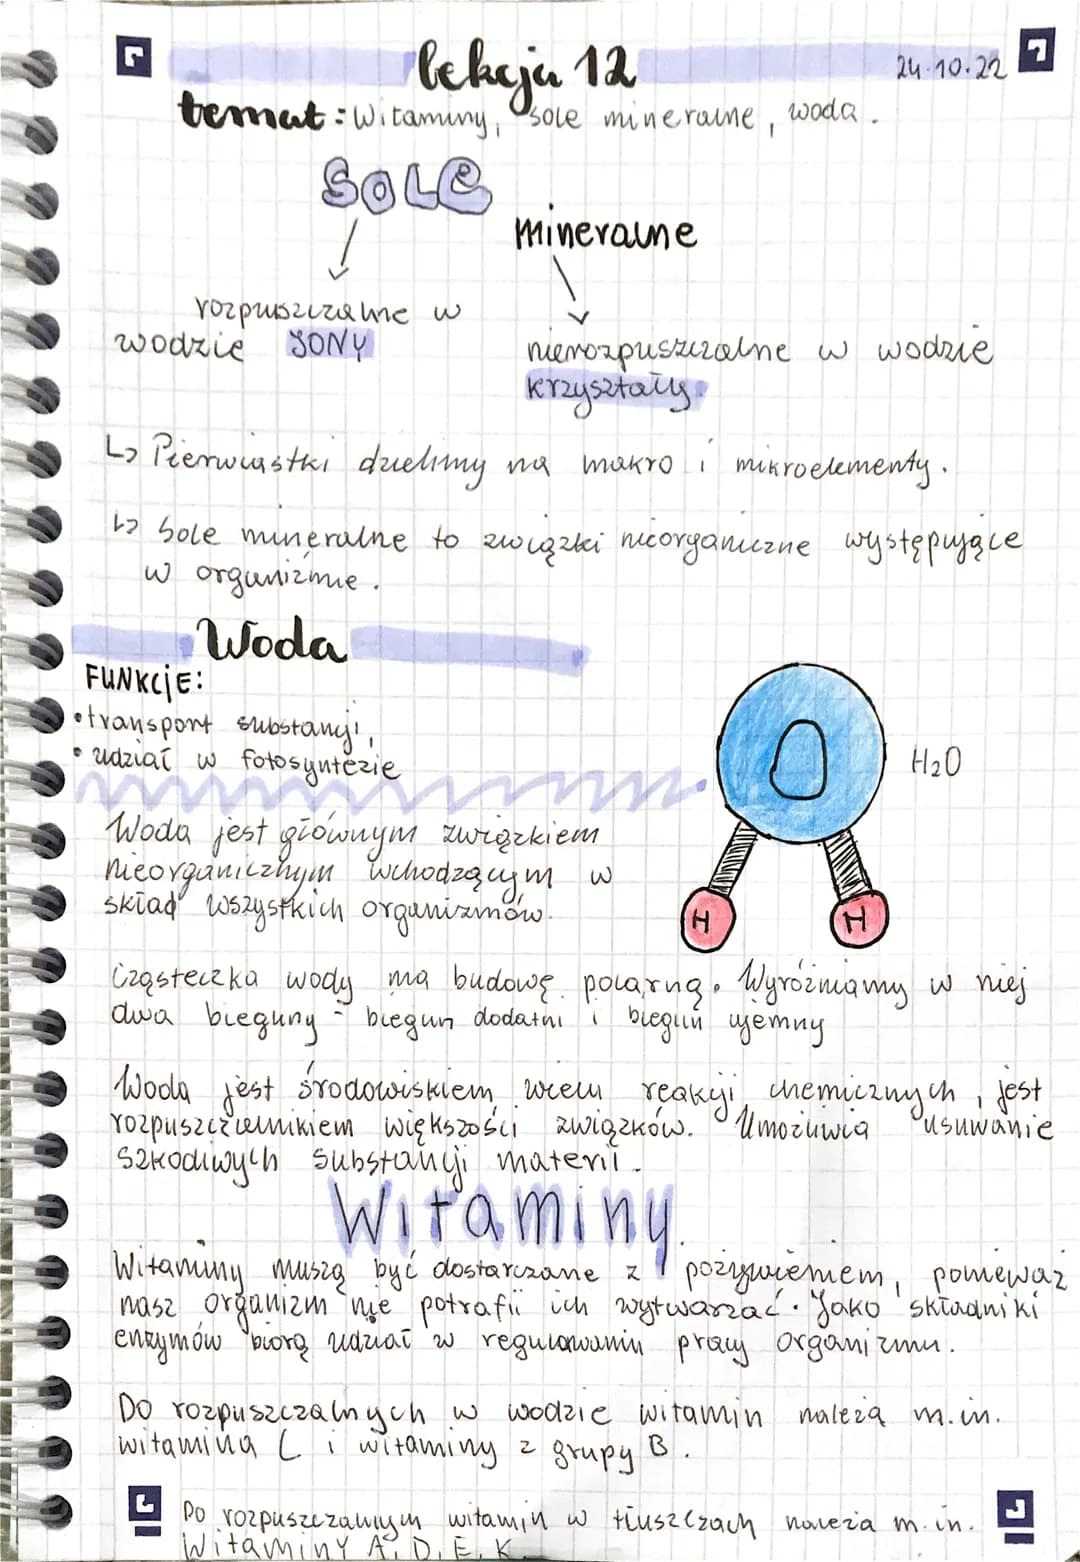 lekcja 12
24.10.22
temat: Witaminy, sole mineralne, woda.
SOLE
mineralne
rozpuszczalne w
wodzie JONY
nierozpuszczalne w wodzie
kryształy
↳ Pierwiastki dzielimy na makro i mikroelementy.
↳ Sole mineralne to związki nieorganiczne występujące
w organizmie.
Woda
FUNKCJE:
• transport substancji,
• udział w fotosyntezie
O
H₂O
H H
Woda jest głównym związkiem
nieorganicznym wchodzącym w
skład wszystkich organizmów.
Cząsteczka wody ma budowę polarną. Wyróżniamy w niej
dwa bieguny - biegun dodatni i biegun ujemny
Woda jest środowiskiem wielu reakcji chemicznych, jest
rozpuszczalnikiem większości związków. Umożliwia usuwanie
szkodliwych substancji materii.
Witaminy
Witaminy muszą być dostarczane z pożywieniem, ponieważ
nasz organizm nie potrafii ich wytwarzać. Jako składniki
enzymów biorą udział w regulowaniu pracy organizmu.
Do rozpuszczalnych w wodzie witamin należą m.in.
witamina C i witaminy z grupy B.
Do rozpuszczalnych witamin w tłuszczach należa m.in.
Witaminy A, D, E, K